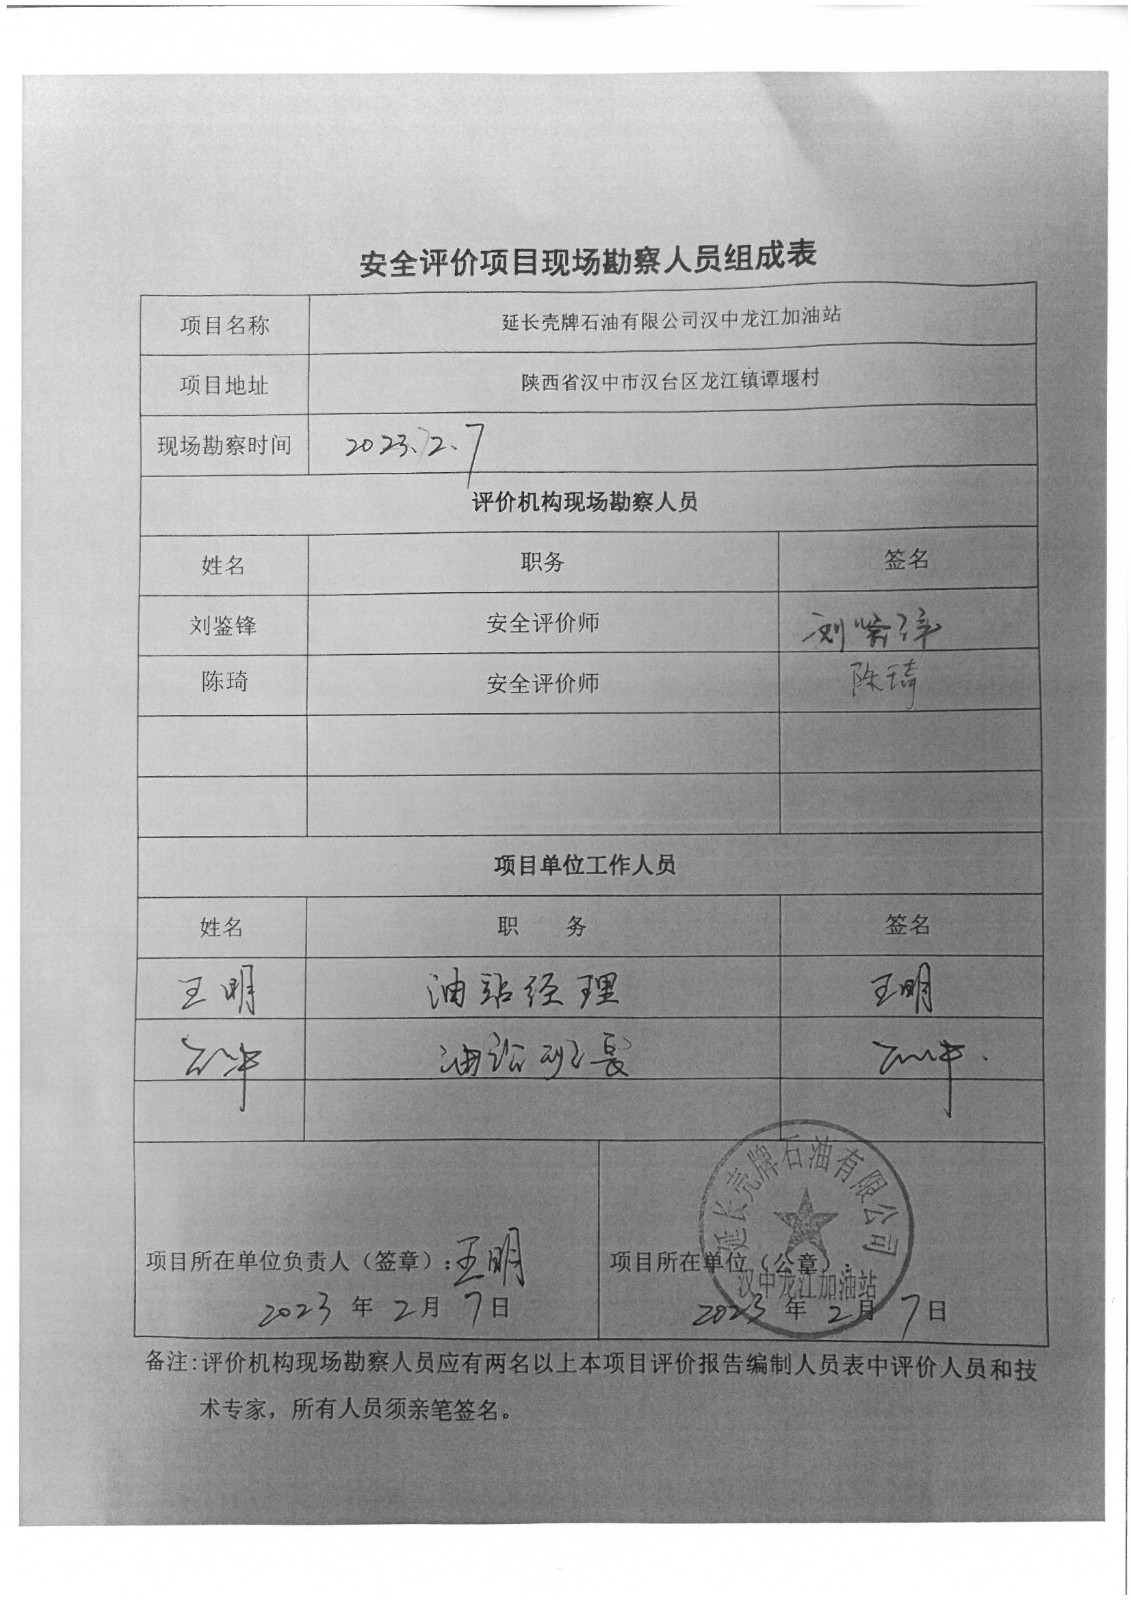 安全评价项目现场勘察人员组成表
项目名称 延长壳牌石油有限公司汉中龙江加油站
项目地址 陕西省汉中市汉台区龙江镇谭堰村
现场勘察时间 2023.2.7
评价机构现场勘察人员
姓名 职务 签名
刘鉴锋 安全评价师 刘鉴锋
陈琦 安全评价师 陈琦
项目单位工作人员
姓名 职 务 签名
王明 油站经理 王明
油站班长
延长壳牌石油有限公司
项目所在单位负责人（签章）:王明 项目所在单位（公章）:
汉中龙江加油站
2023 年 2 月 7 日 2023 年 2 月 7 日
备注:评价机构现场勘察人员应有两名以上本项目评价报告编制人员表中评价人员和技
术专家，所有人员须亲笔签名。